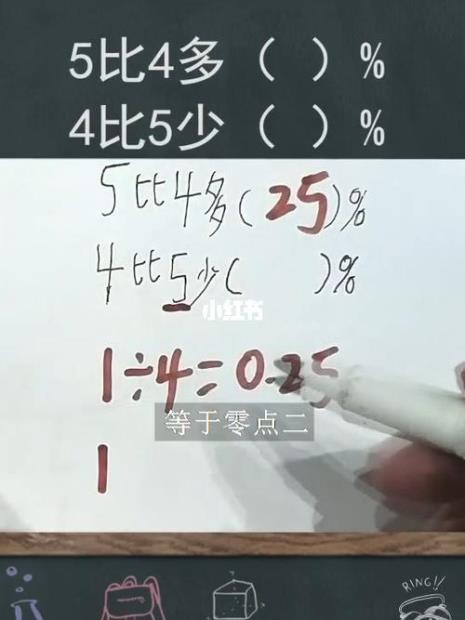 5比4多（ ）%
4比5少（ ）%
5比4多(25)%
4比5少( )%
小红书
1÷4=0.25
等于零点二
1
RING!!